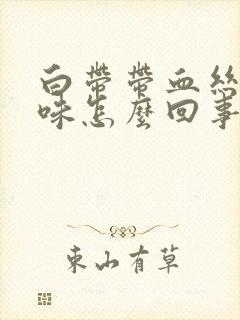 白帶帶血絲
味怎麼回事
東山有草